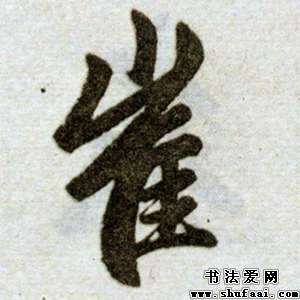 崔
书法爱网
www.shufaai.com